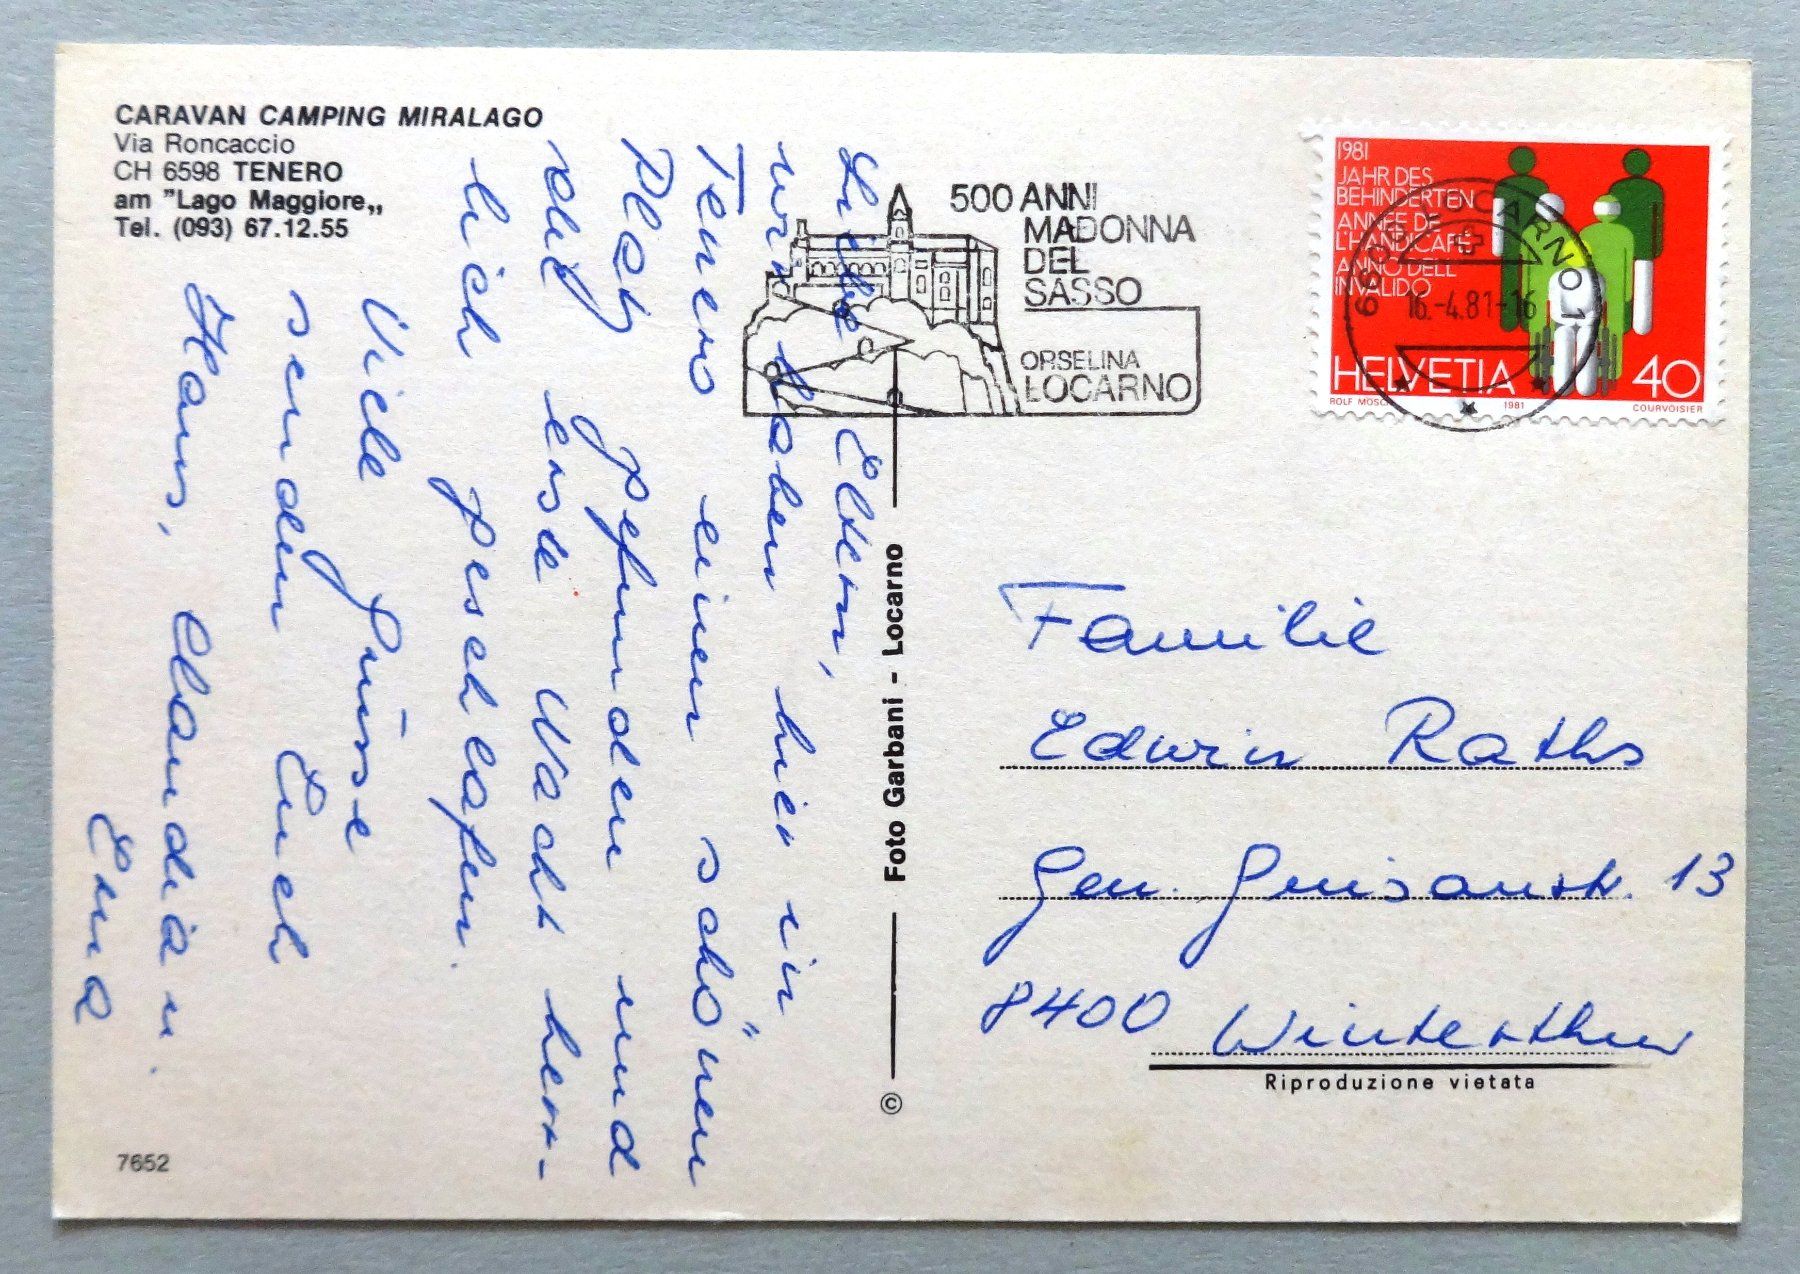 CARAVAN CAMPING MIRALAGO
Via Roncaccio
CH 6598 TENERO
am "Lago Maggiore„
Tel. (093) 67.12.55
Liebe Eltern,
wir haben hier in
Tenero einen schönen
Platz gefunden und
die erste Nacht herr-
lich geschlafen.
Viele Grüsse
senden Euch
Hans, Claudia u.
Erna
7652
500 ANNI
MADONNA
DEL
SASSO
ORSELINA
LOCARNO
1981
JAHR DES
BEHINDERTEN
ANNEE DE
L'HANDICAPE
ANNO DELL'
INVALIDO
HELVETIA 40
ROLF MOSCH 1981 COURVOISIER
6600 LOCARNO 1
16.-4.81-16
Foto Garbani - Locarno
©
Familie
Edwin Raths
Gen. Guisanstr. 13
8400 Winterthur
Riproduzione vietata